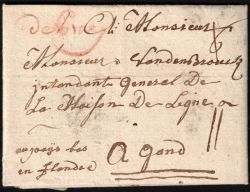 A Monsieur
Monsieur VandenBrouck
intendant General De
La Maison De Ligne
A gand
au pays bas
en flandre